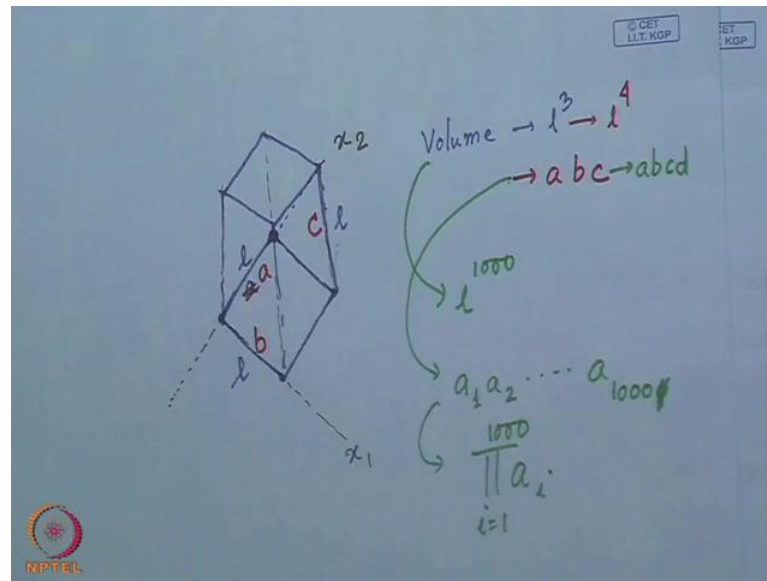 © CET
I.I.T. KGP
CET
KGP
x2
Volume → l³ → l⁴
→ a b c → abcd
c l
l a
b
l
l¹⁰⁰⁰
a₁ a₂ ···· a₁₀₀₀
1000
∏ aᵢ
i=1
x₁
NPTEL